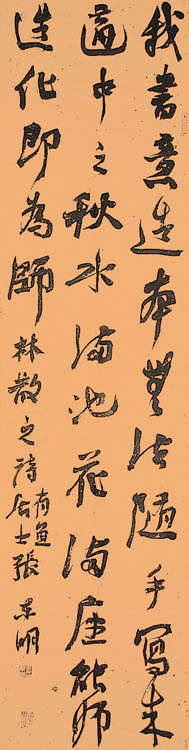 我書意造本無法隨手寫来
適中之秋水滿池花滿座能师
造化即為師 林散之詩
居士張東明